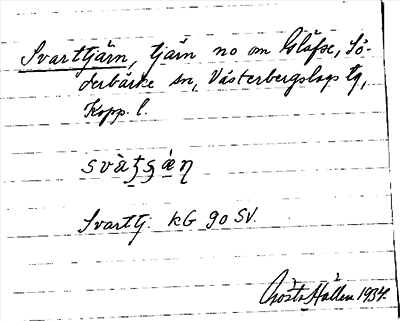 Svarttjärn, tjärn no om Gläfse, Sö-
derbärke sn, Västerbergslags tg,
Kopp. l.
Svarttj. kG 90 SV.
Gösta Hallén 1934.